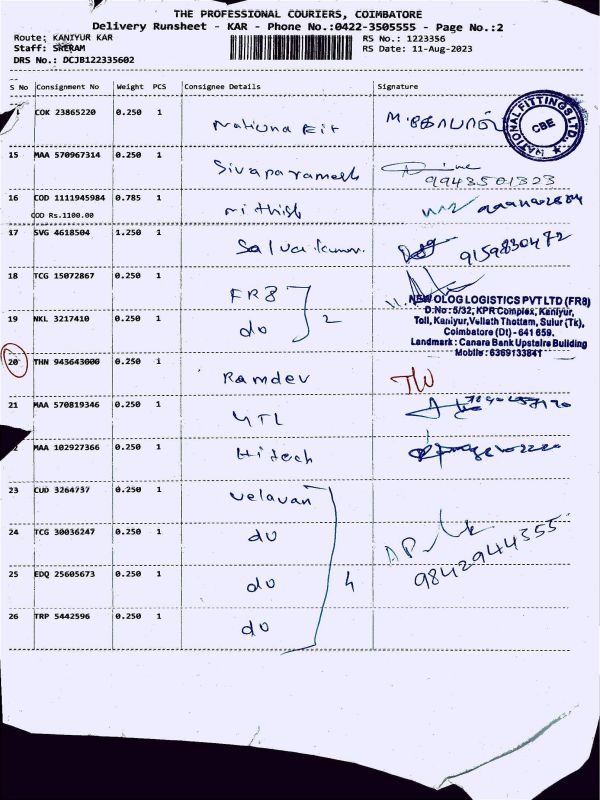 THE PROFESSIONAL COURIERS, COIMBATORE
Delivery Runsheet - KAR - Phone No.:0422-3505555 - Page No.:2
Route: KANIYUR KAR
RS No.: 1223356
Staff: SKERAM
RS Date: 11-Aug-2023
DRS No.: DCJB122335602
S No Consignment No Weight PCS Consignee Details Signature
COK 23865220 0.250 1
NATIONAL FITTINGS LTD.
CBE
15 MAA 570967314 0.250 1 Sivaparamesh
9943501323
16 COD 1111945984 0.785 1 nithish
COD Rs.1100.00
17 SVG 4618504 1.250 1
9159830472
18 TCG 15072867 0.250 1 FR8
2
19 NKL 3217410 0.250 1 do
NEW OLOG LOGISTICS PVT LTD (FR8)
D.No: 5/32, KPR Complex, Kaniyur,
Toll, Kaniyur, Vellath Thottam, Sulur (Tk),
Coimbatore (Dt) - 641 659.
Landmark : Canara Bank Upstaire Building
Mobile : 6369133841
20 THN 943643000 0.250 1 Ramdev TW
21 MAA 570819346 0.250 1 YTL
MAA 102927366 0.250 1 Hitech
23 CUD 3264737 0.250 1 velavan
24 TCG 30036247 0.250 1 do
9842944355
25 EDQ 25605673 0.250 1 do 4
26 TRP 5442596 0.250 1 do